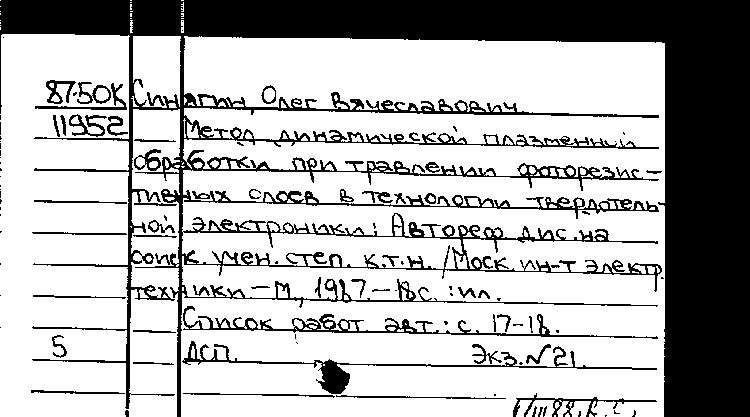 87-50К Синягин, Олег Вячеславович.
11952 Метод динамической плазменной
обработки при травлении фоторезис-
тивных слоев в технологии твердотель-
ной электроники: Автореф. дис. на
соиск. учен. степ. к.т.н. /Моск. ин-т электр.
техники. – М., 1987. – 18с. : ил.
Список работ авт.: с. 17-18.
5 ДСП. Экз. N21.